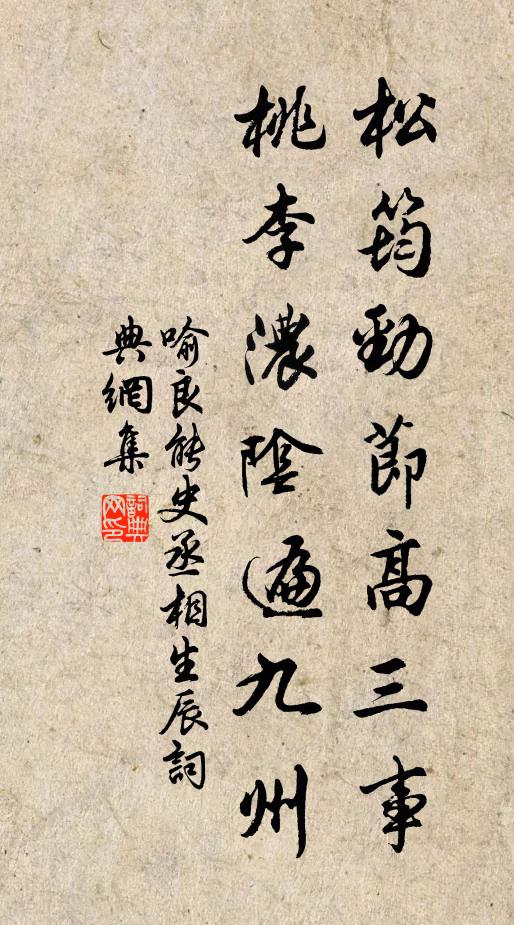 松筠勁節高三事
桃李濃陰遍九州
喻良能史丞相生辰詞
典網集
詞典網印